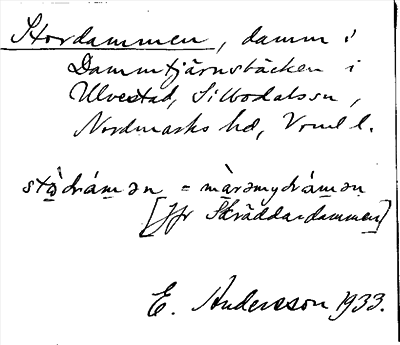 Stordammen, damm i
Dammtjärnsbäcken i
Ulvestad, Silbodals sn,
Nordmarks hd, Vrml l.
stọ̀drámən = màrəmydrámən
[Jfr Skräddardammen]
E. Andersson 1933.